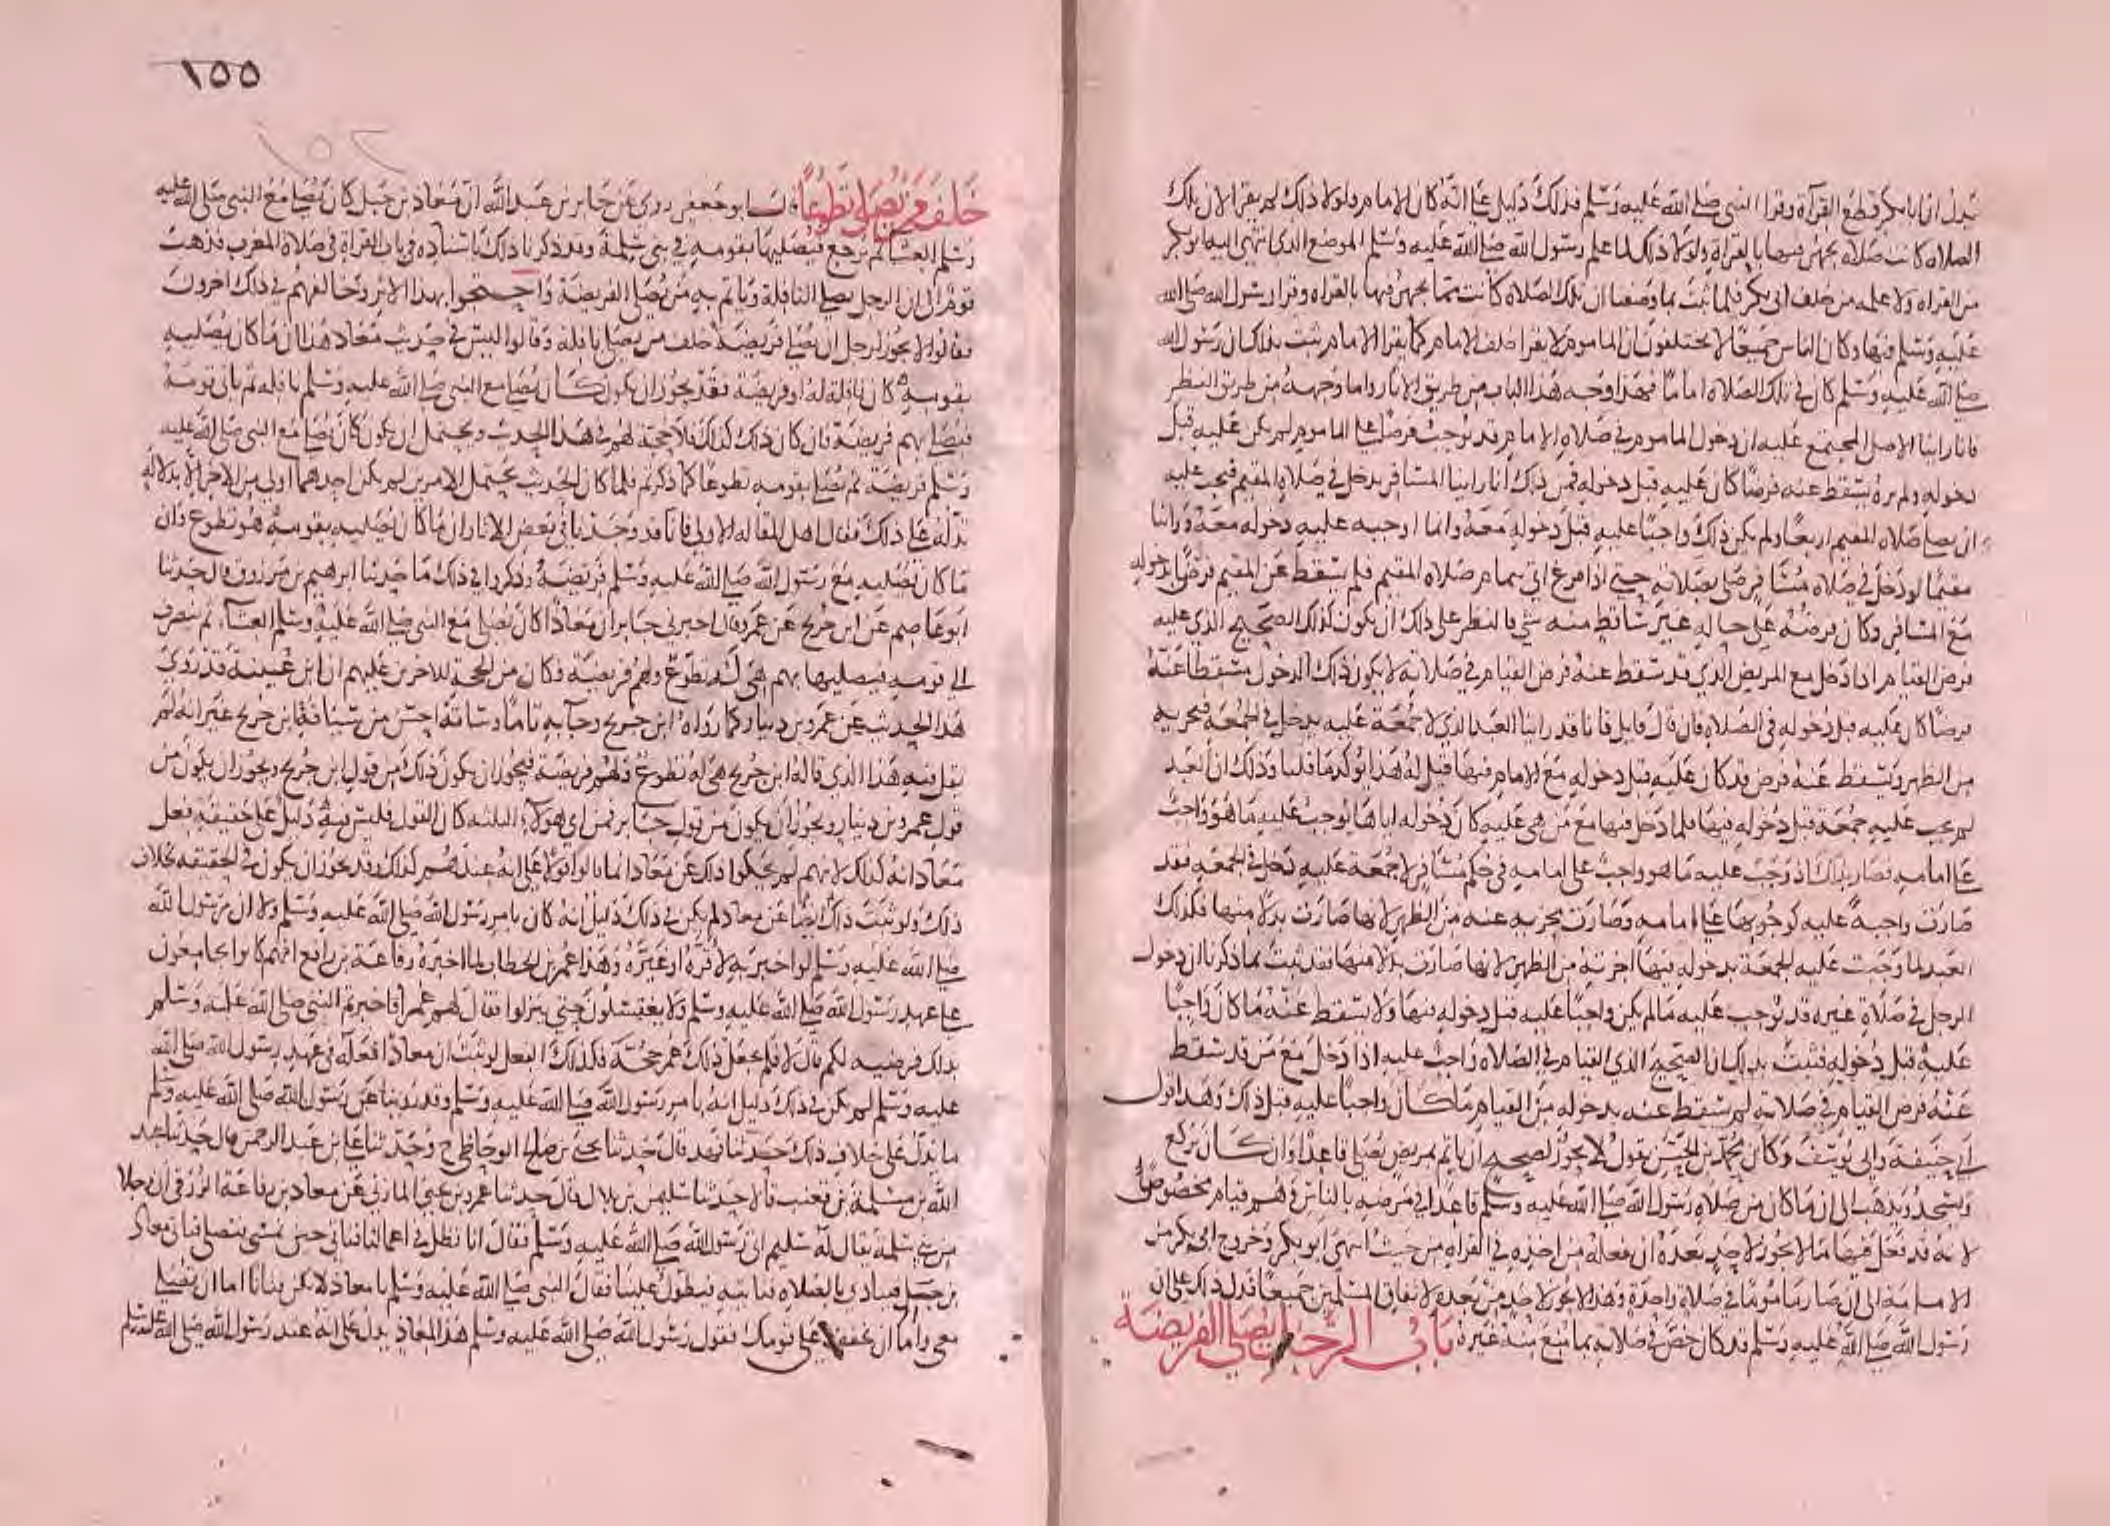 تدل ان ابا بكر قطع القرآة وقرا النبى صلى الله عليه وسلم فدلك دليل على انه كان الامام ولولا ذلك لم يقرا لان تلك
الصلاه كانت صلاة يجهر فيها بالقراة ولولا ذلك لما علم رسول الله صلى الله عليه وسلم الموضع الذى انتهى اليه ابو بكر
من القراه ولا علمه من خلف ابى بكر فلما ثبت بما وصفنا ان تلك الصلاة كانت مما يجهر فيها بالقراه وقرا رسول الله صلى الله
عليه وسلم فيها وكان الناس جميعا لا يختلفون ان الماموم لا يقرا خلف الامام كما يقرا الامام ثبت بذلك ان رسول الله
صلى الله عليه وسلم كان فى تلك الصلاة اماما فهذا وجه هذا الباب من طريق الاثار واما وجهه من طريق النظر
فانا راينا الاصل المجتمع عليه ان دخول الماموم فى صلاة الامام قد يوجب فرضا على الماموم لم يكن عليه قبل
دخوله ولم نره يسقط عنه فرضا كان عليه قبل دخوله فمن ذلك انا راينا المسافر يدخل فى صلاة المقيم فيجب عليه
ان يصلى صلاة المقيم اربعا ولم يكن ذلك واجبا عليه قبل دخوله معه وانما اوجبه عليه دخوله معه وراينا
مقيما لو دخل فى صلاة مسافر صلى بصلاته حتى اذا فرغ اتى بتمام صلاة المقيم فلم يسقط عن المقيم فرض بدخوله
مع المسافر وكان فرضه على حاله غير ساقط منه شى فالنظر على ذلك ان يكون كذلك الصحيح الذى عليه
فرض القيام اذا دخل مع المريض الذى قد سقط عنه فرض القيام فى صلاته لا يكون ذلك الدخول مسقطا عنه
فرضا كان عليه قبل دخوله فى الصلاة فان قال قايل فانا قد راينا العبد الذى لا جمعة عليه يدخل فى الجمعة فيجزيه
من الظهر ويسقط عنه فرض قد كان عليه قبل دخوله مع الامام فيها قيل له هذا يوكد ما قلنا وذلك ان العبد
لم يجب عليه جمعة قبل دخوله فيها فلما دخل فيها مع من هى عليه كان دخوله اياها يوجب عليه ما هو واجب
على امامه فصار بذلك اذ وجب عليه ما هو واجب على امامه فى حكم مسافر لا جمعة عليه دخل فى الجمعه فقد
صارت واجبة عليه لوجوبها على امامه وصارت مجزيه عنه من الظهر لانها صارت بدلا منها فكذلك
العبد لما وجبت عليه الجمعة بدخوله فيها اجزته من الظهر لانها صارت بدلا منها فقد ثبت بما ذكرنا ان دخول
الرجل فى صلاة غيره قد يوجب عليه ما لم يكن واجبا عليه قبل دخوله فيها ولا يسقط عنه ما كان واجبا
عليه قبل دخوله فثبت بذلك ان الصحيح الذى القيام فى الصلاه واجب عليه اذا دخل مع من قد سقط
عنه فرض القيام فى صلاته لم يسقط عنه بدخوله من القيام ما كان واجبا عليه قبل ذلك وهذا قول
ابى حنيفة وابى يوسف وكان محمد بن الحسن يقول لا يجوز لصحيح ان ياتم بمريض يصلى قاعدا وان كان يركع
ويسجد ويذهب الى ان ما كان من صلاة رسول الله صلى الله عليه وسلم قاعدا فى مرضه بالناس وهم قيام مخصوص
لانه قد فعل فيها ما لا يجوز لاحد بعده ان يفعله من اخذه فى القراة من حيث انتهى ابو بكر وخروج ابى بكر من
الامامة الى ان صار ماموما فى صلاة واحدة وهذا لا يجوز لاحد من بعده لاتفاق المسلمين جميعا فدل ذلك على ان
رسول الله صلى الله عليه وسلم قد كان خص فى صلاته بما منع منه غيره باب الرجل يصلى الفريضة
١٥٥
خلف من يصلى تطوعا قال ابو جعفر روى عن جابر بن عبد الله ان معاذ بن جبل كان يصلى مع النبى صلى الله عليه
وسلم العشا ثم يرجع فيصليها بقومه فى بنى سلمة وقد ذكرنا ذلك باسناده فى باب القراة فى صلاة المغرب فذهب
قوم الى ان الرجل يصلى النافلة وياتم به من يصلى الفريضة واحتجوا بهذا الاثر وخالفهم فى ذلك اخرون
فقالوا لا يجوز لرجل ان يصلى فريضة خلف من يصلى نافلة وقالوا ليس فى حديث معاذ هذا ان ما كان يصليه
بقومه كان نافلة له او فريضة فقد يجوز ان يكون كان يصلى مع النبى صلى الله عليه وسلم نافله ثم ياتى قومه
فيصلى بهم فريضة فان كان ذلك كذلك فلا حجة لهم فى هذا الحديث ويحتمل ان يكون كان يصلى مع النبى صلى الله عليه
وسلم فريضة ثم يصلى بقومه تطوعا كما ذكرتم فلما كان الحديث يحتمل الامرين لم يكن احدهما اولى من الاخر الا بدلالة
تدله على ذلك فقال اهل المقاله الاولى فانا قد وجدنا فى بعض الاثار ان ما كان يصليه بقومه هو تطوع وان
ما كان يصليه مع رسول الله صلى الله عليه وسلم فريضة وذكروا فى ذلك ما حدثنا ابرهيم بن مرزوق قال حدثنا
ابو عاصم عن ابن جريج عن عمرو قال اخبرنى جابر ان معاذا كان يصلى مع النبى صلى الله عليه وسلم العشاء ثم ينصرف
الى قومه فيصليها بهم هى له تطوع ولهم فريضة وكان من الحجة للاخرين عليهم ان ابن عيينة قد روى
هذا الحديث عن عمرو بن دينار كما رواه ابن جريج وجآ به تاما وساقه احسن من سياق ابن جريج غير انه لم
يقل فيه هذا الذى قاله ابن جريج هى له تطوع ولهم فريضة فيجوز ان يكون ذلك من قول ابن جريج ويجوز ان يكون من
قول عمرو بن دينار ويجوز ان يكون من قول جابر فمن اى هولاء الثلثة كان القول فليس فيه دليل على حقيقة فعل
معاذ انه كذلك لانهم لم يحكوا ذلك عن معاذ انما قالوا قولا على انه عندهم كذلك وقد يجوز ان يكون فى الحقيقه بخلاف
ذلك ولو ثبت ذلك ايضا عن معاذ لم يكن فى ذلك دليل انه كان بامر رسول الله صلى الله عليه وسلم ولا ان رسول الله
صلى الله عليه وسلم لو اخبر به لاقره او غيره وهذا عمر بن الخطاب لما اخبره رفاعة بن رافع انهم كانوا يجامعون
على عهد رسول الله صلى الله عليه وسلم ولا يغتسلون حتى ينزلوا فقال لهم عمر افاخبرتم النبى صلى الله عليه وسلم
بذلك فرضيه لكم قال لا فلم يجعل ذلك عمر حجة فكذلك الفعل لو ثبت ان معاذا فعله فى عهد رسول الله صلى الله
عليه وسلم لم يكن فى ذلك دليل انه بامر رسول الله صلى الله عليه وسلم وقد روينا عن رسول الله صلى الله عليه وسلم
ما يدل على خلاف ذلك حدثنا فهد قال حدثنا يحيى بن صلح الوحاظى ح وحدثنا على بن عبد الرحمن قال حدثنا عبد
الله بن مسلمة بن قعنب قالا حدثنا سليمن بن بلال قال حدثنا عمرو بن يحيى المازنى عن معاذ بن رفاعة الزرقى ان رجلا
من بنى سلمة يقال له سليم اتى رسول الله صلى الله عليه وسلم فقال انا نظل فى اعمالنا فناتى حين نمسى فنصلى فياتى معاذ
بن جبل فينادى بالصلاه فناتيه فيطول علينا فقال النبى صلى الله عليه وسلم يا معاذ لا تكن فتانا اما ان تصلى
معى واما ان تخفف على قومك فقول رسول الله صلى الله عليه وسلم هذا لمعاذ يدل على انه عند رسول الله صلى الله عليه وسلم